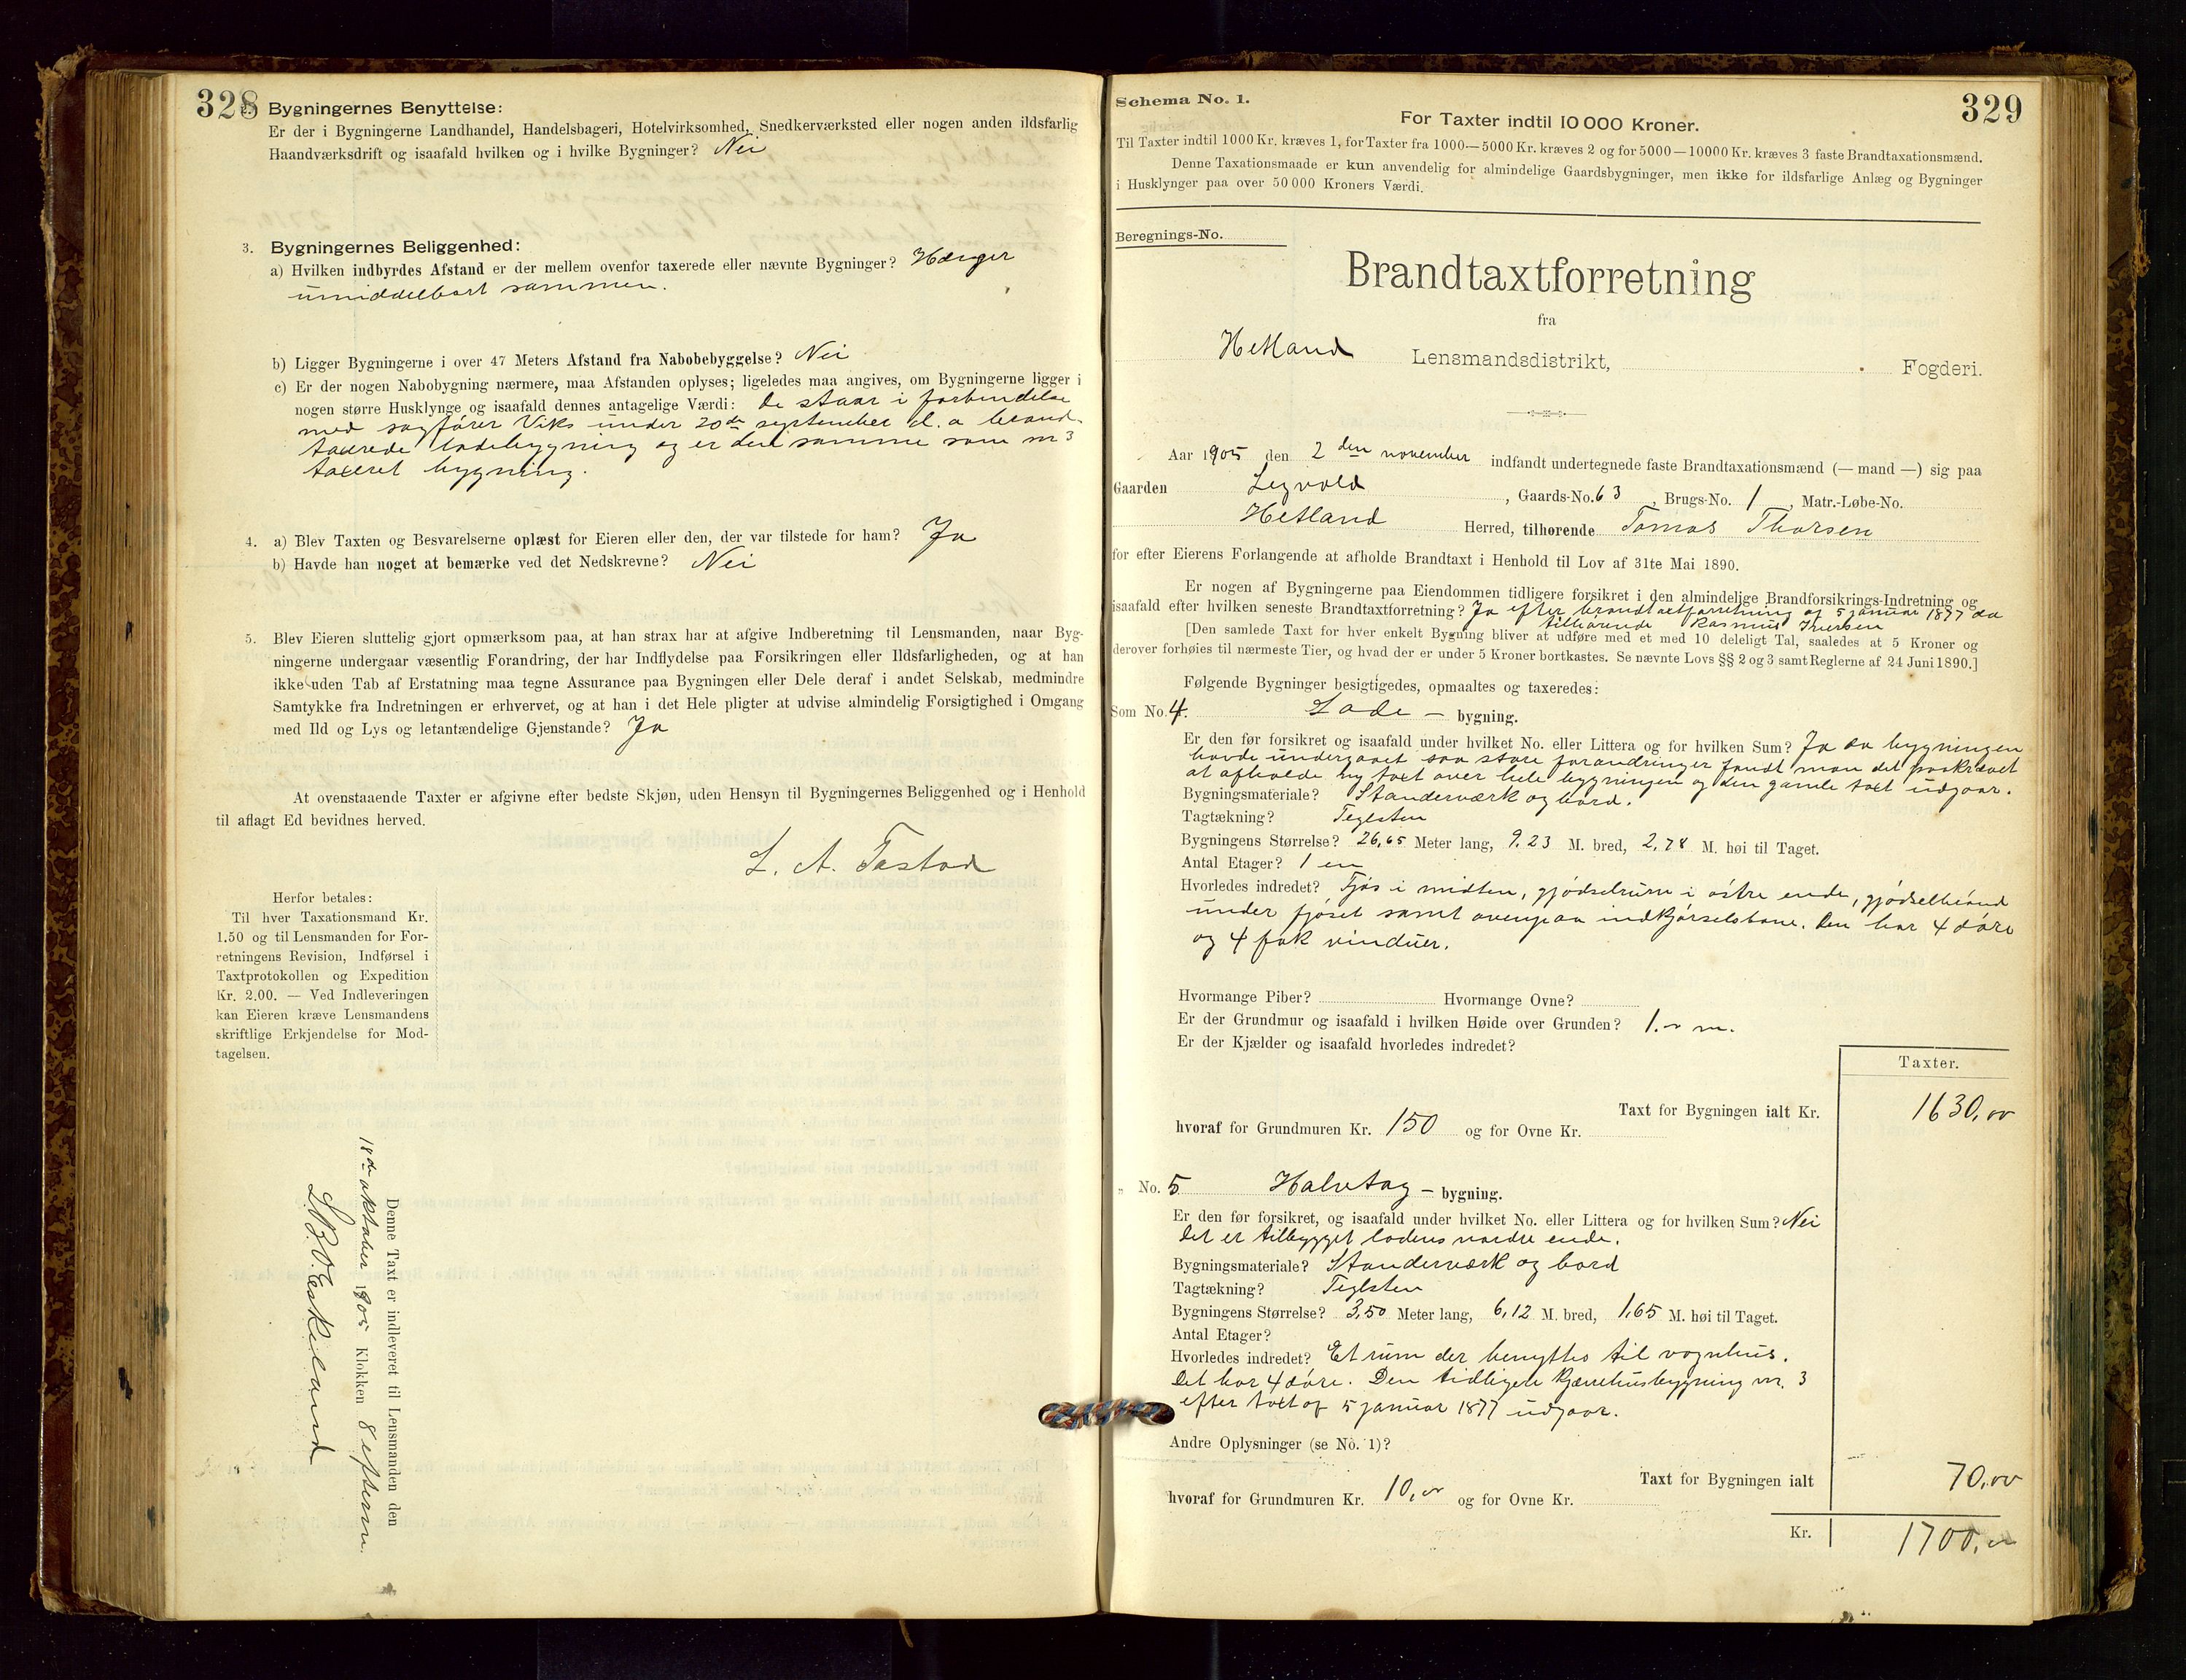 328
Bygningernes Benyttelse:
Er der i Bygningerne Landhandel, Handelsbageri, Hotelvirksomhed, Snedkerværksted eller nogen anden ildsfarlig
Haandværksdrift og isaafald hvilken og i hvilke Bygninger? Nei
3. Bygningernes Beliggenhed:
a) Hvilken indbyrdes Afstand er der mellem ovenfor taxerede eller nævnte Bygninger? Hænger
umiddelbart sammen.
b) Ligger Bygningerne i over 47 Meters Afstand fra Nabobebyggelse? Nei
c) Er der nogen Nabobygning nærmere, maa Afstanden oplyses; ligeledes maa angives, om Bygningerne ligger i
nogen større Husklynge og isaafald dennes antagelige Værdi: De staar i forbindelse
med sagfører Viks under 20de september d. a brand-
taxerede ladebygning og er den samme som nr 3
taxeret bygning.
4. a) Blev Taxten og Besvarelserne oplæst for Eieren eller den, der var tilstede for ham? Ja
b) Havde han noget at bemærke ved det Nedskrevne? Nei
5. Blev Eieren sluttelig gjort opmærksom paa, at han strax har at afgive Indberetning til Lensmanden, naar Byg-
ningerne undergaar væsentlig Forandring, der har Indflydelse paa Forsikringen eller Ildsfarligheden, og at han
ikke uden Tab af Erstatning maa tegne Assurance paa Bygningen eller Dele deraf i andet Selskab, medmindre
Samtykke fra Indretningen er erhvervet, og at han i det Hele pligter at udvise almindelig Forsigtighed i Omgang
med Ild og Lys og letantændelige Gjenstande? Ja
At ovenstaaende Taxter er afgivne efter bedste Skjøn, uden Hensyn til Bygningernes Beliggenhed og i Henhold
til aflagt Ed bevidnes herved.
L. A. Tastad
Herfor betales:
Til hver Taxationsmand Kr.
1.50 og til Lensmanden for For-
retningens Revision, Indførsel i
Taxtprotokollen og Expedition
Kr. 2.00. — Ved Indleveringen
kan Eieren kræve Lensmandens
skriftlige Erkjendelse for Mod-
tagelsen.
Denne Taxt er indleveret til Lensmanden den
18de oktober 1905 Klokken 8 efterm.
L. B. O. Eskeland
Schema No. 1.
329
For Taxter indtil 10 000 Kroner.
Til Taxter indtil 1000 Kr. kræves 1, for Taxter fra 1000—5000 Kr. kræves 2 og for 5000—10000 Kr. kræves 3 faste Brandtaxationsmænd.
Denne Taxationsmaade er kun anvendelig for almindelige Gaardsbygninger, men ikke for ildsfarlige Anlæg og Bygninger
i Husklynger paa over 50 000 Kroners Værdi.
Beregnings-No.
Brandtaxtforretning
fra
Hetland Lensmandsdistrikt, Fogderi.
Aar 1905 den 2den november indfandt undertegnede faste Brandtaxationsmænd (— mand —) sig paa
Gaarden Legvold, Gaards-No. 63, Brugs-No. 1, Matr.-Løbe-No.
Hetland Herred, tilhørende Tomas Thorsen
for efter Eierens Forlangende at afholde Brandtaxt i Henhold til Lov af 31te Mai 1890.
Er nogen af Bygningerne paa Eiendommen tidligere forsikret i den almindelige Brandforsikrings-Indretning og
isaafald efter hvilken seneste Brandtaxtforretning? Ja efter brandtaxtforretning af 5 januar 1877 da
tilhørende Rasmus Iversen
[Den samlede Taxt for hver enkelt Bygning bliver at udføre med et med 10 deleligt Tal, saaledes at 5 Kroner og
derover forhøies til nærmeste Tier, og hvad der er under 5 Kroner bortkastes. Se nævnte Lovs §§ 2 og 3 samt Reglerne af 24 Juni 1890.]
Følgende Bygninger besigtigedes, opmaaltes og taxeredes:
Som No. 4. Lade — bygning.
Er den før forsikret og isaafald under hvilket No. eller Littera og for hvilken Sum? Ja da bygningen
havde undergaaet saa store forandringer fandt man det paakrævet
at afholde ny taxt over hele bygningen og den gamle taxt udgaar.
Bygningsmateriale? Standerværk og bord.
Tagtækning? Teglsten
Bygningens Størrelse? 26,65 Meter lang, 9.23 M. bred, 2,78 M. høi til Taget.
Antal Etager? 1 en
Hvorledes indredet? Fjøs i midten, gjødselrum i østre ende, gjødselbeind
under fjøset samt ovenpaa indkjørselsbane. Den har 4 døre
og 4 fak vinduer.
Hvormange Piber? Hvormange Ovne?
Er der Grundmur og isaafald i hvilken Høide over Grunden? 1. m.
Er der Kjælder og isaafald hvorledes indredet?
Taxter.
Taxt for Bygningen ialt Kr. 1630,00
hvoraf for Grundmuren Kr. 150 og for Ovne Kr.
" No. 5 Halvtag — bygning.
Er den før forsikret, og isaafald under hvilket No. eller Littera og for hvilken Sum? Nei
Det er tilbygget ladens nordre ende.
Bygningsmateriale? Standerværk og bord
Tagtækning? Teglsten
Bygningens Størrelse? 3,50 Meter lang, 6,12 M. bred, 1,65 M. høi til Taget.
Antal Etager?
Hvorledes indredet? Et rum der benyttes til vognhus.
Det har 4 døre. Den tidligere kjærrehusbygning nr. 3
efter taxt af 5 januar 1877 udgaar.
Andre Oplysninger (se No. 1)?
Taxt for Bygningen ialt 70,00
hvoraf for Grundmuren Kr. 10,00 og for Ovne Kr.
Kr. 1700,00